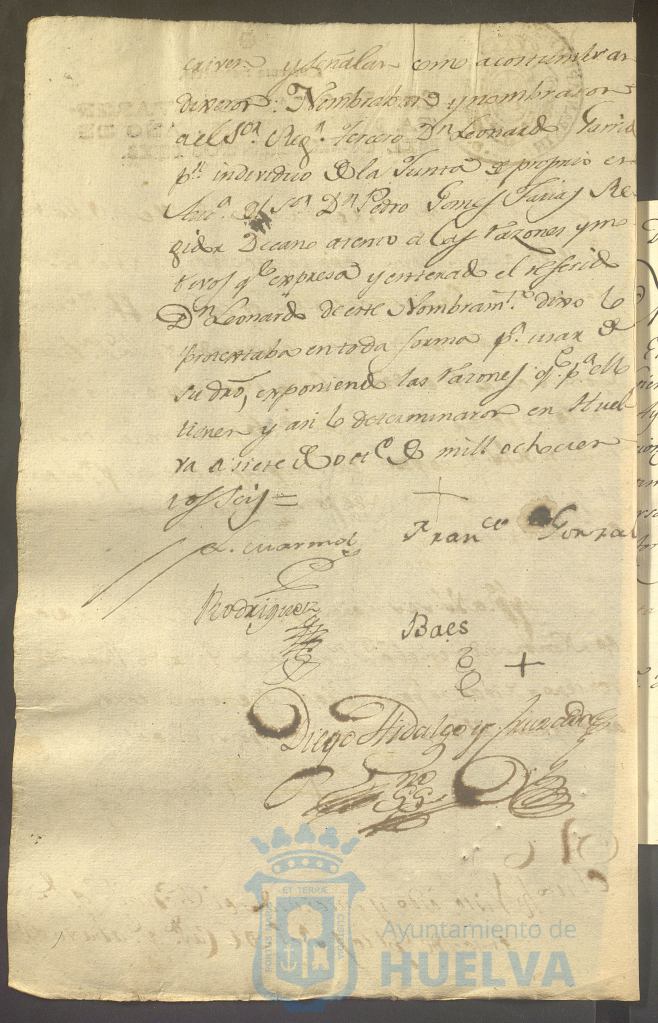 criven y señalan como acostumbran
de veros: Nombraban y nombraron
a el Sor. Regr. tercero Dn. Leonardo
pr. individuo de la Junta de propios en
del Sor Dn Pedro Gomez Farias Re
gidor Decano atento a las razones y mo
tivos qe expresa y enterado el referido
Dn Leonardo de este Nombramto. dixo lo
protextaba en toda forma pa. usar de
su dro, exponiendo las razones qe. pa. ello
tiene y asi lo determinaron en Huel
va a siete de de mill ochocien
tos seis =
Franco Gonzal
Rodriguez
Baes
Diego Hidalgo y
Ayuntamiento de
HUELVA